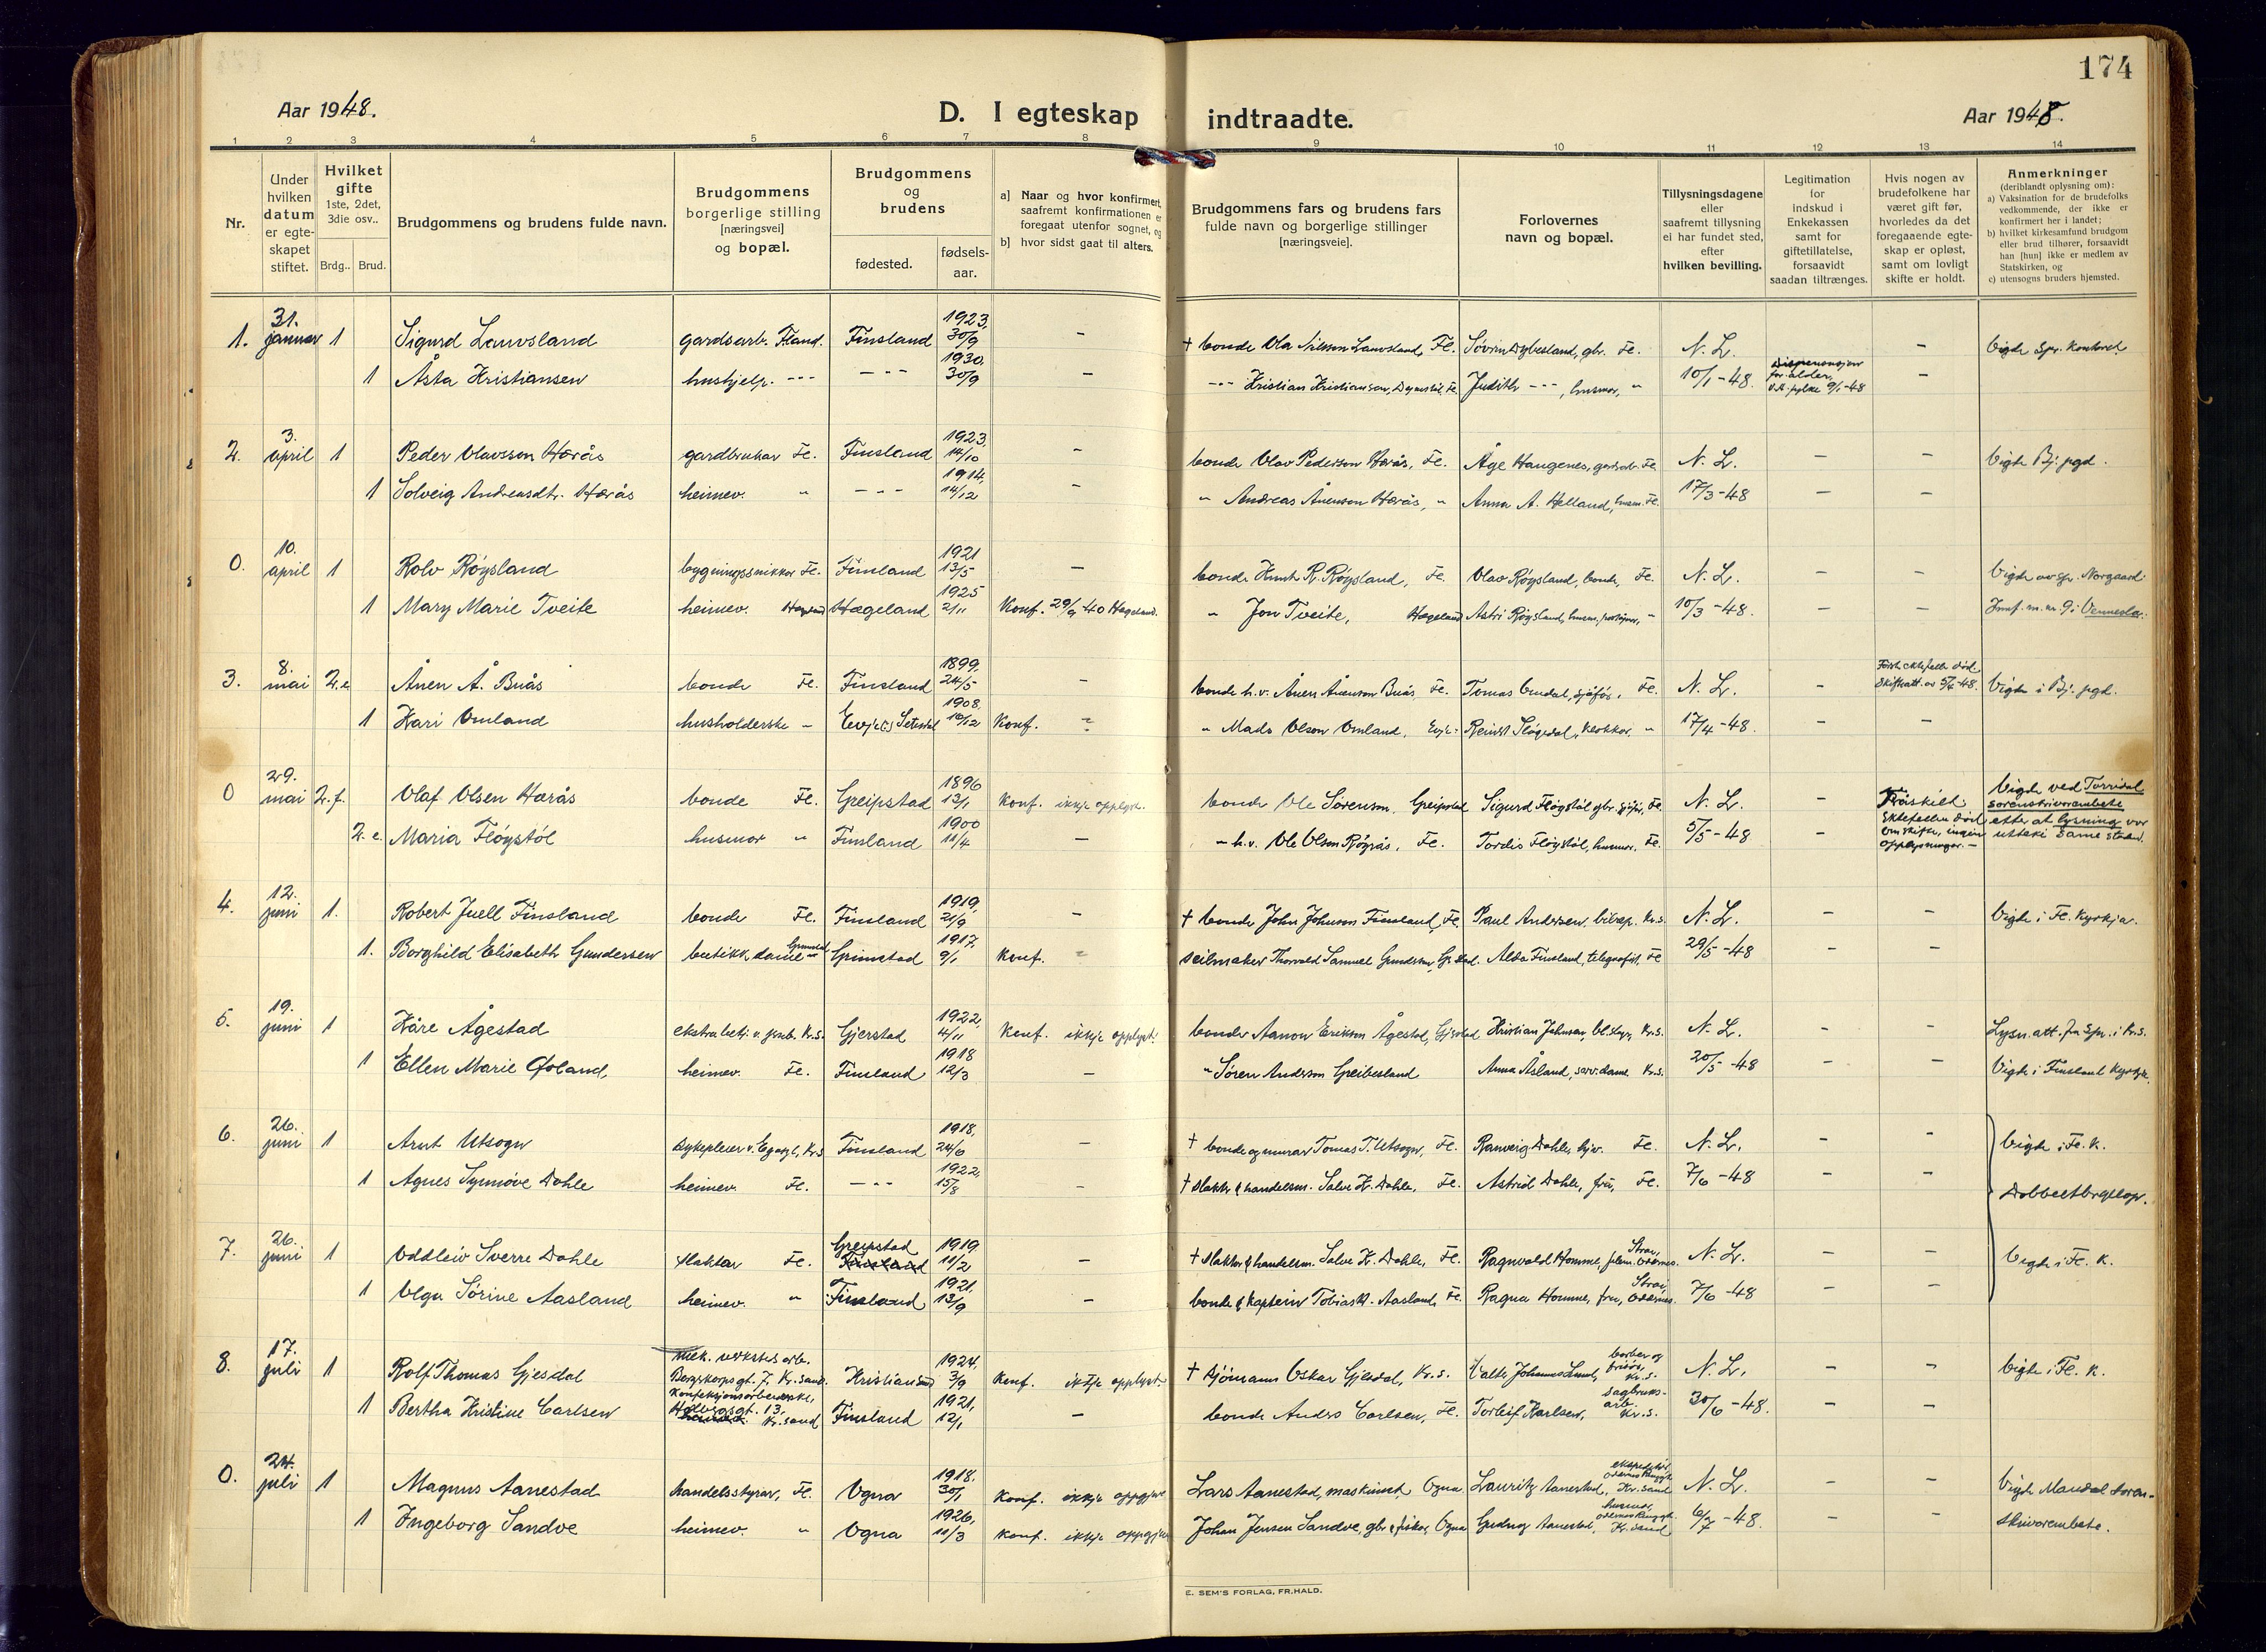 174
Aar 1948.
D. I egteskap indtraadte.
Aar 1948.
1 2 3 4 5 6 7 8 9 10 11 12 13 14
Nr.
Under hvilken datum er egte- skapet stiftet.
Hvilket gifte 1ste, 2det, 3die osv..
Brdg.. Brud.
Brudgommens og brudens fulde navn.
Brudgommens borgerlige stilling [næringsvei] og bopæl.
Brudgommens og brudens
fødested.
fødsels- aar.
a] Naar og hvor konfirmert, saafremt konfirmationen er foregaat utenfor sognet, og
b] hvor sidst gaat til alters.
Brudgommens fars og brudens fars fulde navn og borgerlige stillinger [næringsveie].
Forlovernes navn og bopæl.
Tillysningsdagene eller saafremt tillysning ei har fundet sted, efter hvilken bevilling.
Legitimation for indskud i Enkekassen samt for giftetillatelse, forsaavidt saadan tiltrænges.
Hvis nogen av brudefolkene har været gift før, hvorledes da det foregaaende egte- skap er opløst, samt om lovligt skifte er holdt.
Anmerkninger (deriblandt oplysning om):
a) Vaksination for de brudefolks vedkommende, der ikke er konfirmert her i landet;
b) hvilket kirkesamfund brudgom eller brud tilhører, forsaavidt han [hun] ikke er medlem av Statskirken, og
c) utensogns bruders hjemsted.
1. 31. januar 1 Sigurd Lauvsland gardsarb. Fland. Finsland 1923, 30/9 - † bonde Ola Nilsson Lauvsland, Fe. Søvrin Dybesland, gbr. Fe. N. L. - Vigde spr. kontoret
1 Åsta Kristiansen hushjelp. --- --- 1930, 30/9 - --- Kristian Kristiansen, Fe. Judith ---, husmor, " 10/1-48. Dispensasjon for alder, 9/1-48 -
2. 3. april 1 Peder Olavsson Hærås gardbrukar Fe. Finsland 1923, 14/10 - bonde Olav Pederson Hærås, Fe. Åge Haugenes, gardsarb. Fe. N. L. - - Vigde Bj. pgd.
1 Solveig Andreasdtr. Hærås heimev. " --- 1914, 14/12 - " Andreas Ånenson Hærås, " Anna A. Helland, husm. Fe. 17/3-48 - -
0. 10. april 1 Rolv Røysland bygningssnikkar Fe. Finsland 1921 13/5 - bonde Knut R. Røysland, Fe. Olav Røysland, bonde, Fe. N. L. - - Vigde av spr. Norgaard.
1 Mary Marie Tveite heimev. Hægeland 1925 2/11 Konf. 29/9 40 Hægeland. " Jon Tveite, Hægeland Astri Røysland, husm. " 10/3-48. - - Innf. m. nr. 9 i Vennesla.
3. 8. mai 2.e Ånen Å. Buås bonde Fe. Finsland 1899. 24/5 - bonde h.v. Ånen Ånenson Buås, Fe. Tomas Omdal, sjåfør, Fe. N. L. - Første ektefelle død. Skifteatt. av 5/4-48. Vigde i Bj. pgd.
1 Kari Omland husholderske " Evje i Setesdal 1908. 10/12 Konf. - " Mads Olson Omland, Evje. Reinert Fløgedal, klokkar. " 17/4-48. - -
0 29. mai 2.f. Olaf Olsen Hærås bonde Fe. Greipstad 1896 13/1 Konf. ikkje opplyst. bonde Ole Sørensen, Greipstad Sigurd Fløystøl gbr. sjåfør, Fe. N. L. - Fråskild. Vigde ved Torridal sorenskrivarembete
2. e. Maria Fløystøl husmor " Finsland 1900 11/4 - " h.v. Ole Olson Røyrås, Fe. Tordis Fløystøl, husmor, Fe. 5/5-48 - Ektefellen død. Om skifte, ingen opplysningar. - etter at lysning var utteki same staden.
4. 12. juni 1. Robert Juell Finsland bonde Fe. Finsland 1919, 21/9 - † bonde John Johnson Finsland, Fe. Paul Andersen, bilrep. Kr.s. N. L. - - Vigde i Fe. kyrkja.
1. Borghild Elisabeth Gundersen butikkdame Grimstad Grimstad 1917, 9/1 Konf. - seilmaker Thorvald Samuel Gundersen, Gr.stad. Alda Finsland, telegrafist, Fe 29/5-48 - -
5. 19. juni 1 Kåre Ågestad Kr.S. Gjerstad 1922, 4/11 Konf. ikkje opplyst. bonde Aanon Erikson Ågestad, Gjerstad Kristian Johnsen, Kr.S. N. L. - - Lysn. att. fra Spr. i Kr.S.
1 Ellen Marie Øland heimev. Fe. Finsland 1918 12/3 - " Søren Anderson Greibesland Anna Åsland, serv.dame Kr.s. 20/5-48 - - Vigde i Finsland kyrkje.
6. 26. juni 1 Arnt Utsogn Kr.s Finsland 1918, 24/6 - † bonde og murar Tomas T. Utsogn, Fe. Ranveig Dahle, Fe. N. L. - - Vigde i Fe. k.
1 Agnes Synnøve Dahle heimev. Fe. --- 1922, 15/8 - † slakter & handelsm. Salve K. Dahle, Fe. Astrid Dahle, frü, Fe. 7/6-48 - - Dobbeltbryllop.
7. 26. juni 1 Oddleiv Sverre Dahle slaktar Fe. Greipstad Finsland 1919 11/2 - † slakter & handelsm. Salve K. Dahle, Fe. Ragnvald Homme, Strai, Oddernes. N. L. - - Vigde i Fe. k.
1 Olga Sørine Aasland heimev. " Finsland 1921, 13/9 - bonde & kaptein Tobias K. Aasland, Fe. Ragna Homme, fru, Strai, Oddernes. 7/6-48 - -
8. 17. juli 1 Rolf Thomas Gjesdal mek. verksted arb. Kr. sand Kristiansand 1924, 3/9 Konf. ikkje opplyst. † sjömann Oskar Gjesdal, Kr.s. barber og frisør, Kr.S. N. L. - - Vigde i Fe. k.
1 Bertha Kristine Carlsen Konfeksjonsarbeiderske, Holbergsgt. 13, Kr.sand Finsland 1921, 12/1 - bonde Anders Carlsen, Fe. Torleif Karlsen, sagbruks- arb. Kr.S. 30/6-48. - -
0. 24. juli 1 Magnus Aanestad handelsstyrar, Fe. Ogna 1918. 30/1 Konf. ikkje oppgjeve Lars Aanestad, maskinist, Ogna Lauritz Aanestad, ekspeditør, Kr.sand N. L. - - Vigde Mandal soren-
1 Ingeborg Sandve heimev. " Ogna 1926, 11/3 Konf. ikkje oppgjeve Johan Jensen Sandve, gbr & fisker, Ogna Gudny Aanestad, husmor, Kr.sand 6/7-48. - - skrivarembete.
E. SEM'S FORLAG, FR.HALD.